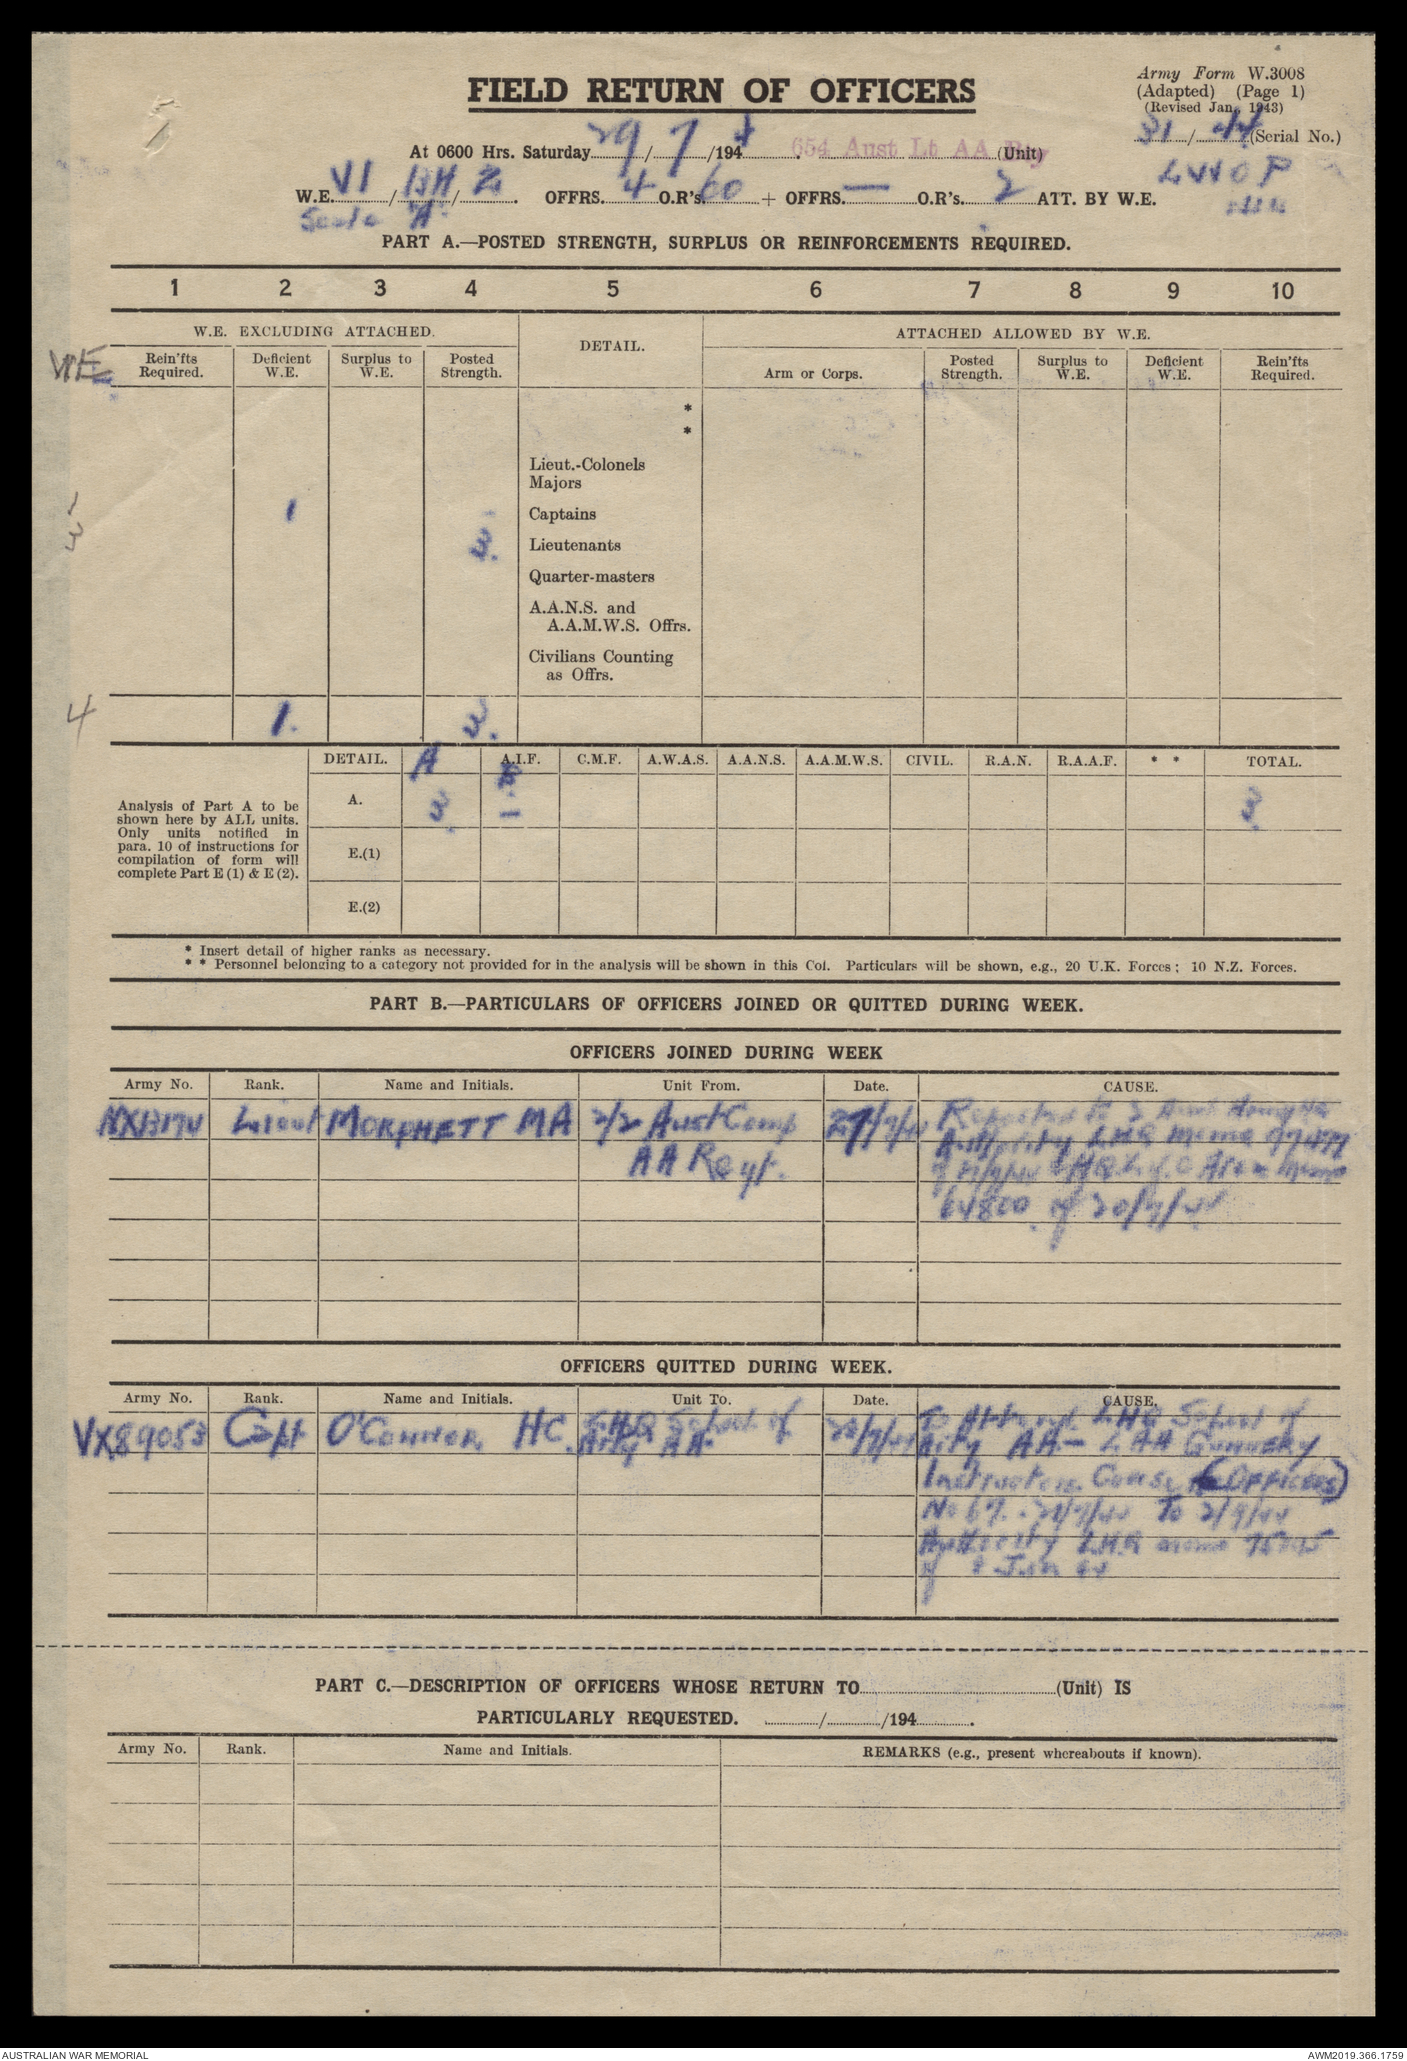 Army Form W.3008
FIELD RETURN OF OFFICERS
(Adapted) (Page 1)
(Revised Jan, 1943)
31/44 (Serial No.)
At 0600 Hrs. Saturday 29/7/1944. 654 Aust Lt AA Bty (Unit)
W.E. VI/13H/2. OFFRS. 4 O.R's. 60 + OFFRS. — O.R's. 2 ATT. BY W.E.
Scale "A"
PART A.—POSTED STRENGTH, SURPLUS OR REINFORCEMENTS REQUIRED.
1 2 3 4 5 6 7 8 9 10
W.E. EXCLUDING ATTACHED. DETAIL. ATTACHED ALLOWED BY W.E.
WE Rein'fts Required. Deficient W.E. Surplus to W.E. Posted Strength. Arm or Corps. Posted Strength. Surplus to W.E. Deficient W.E. Rein'fts Required.
*
*
Lieut.-Colonels
Majors
1 1 Captains
3 3. Lieutenants
Quarter-masters
A.A.N.S. and
A.A.M.W.S. Offrs.
Civilians Counting
as Offrs.
4 1. 3.
DETAIL. A A.I.F. B C.M.F. A.W.A.S. A.A.N.S. A.A.M.W.S. CIVIL. R.A.N. R.A.A.F. * * TOTAL.
Analysis of Part A to be
shown here by ALL units.
Only units notified in
para. 10 of instructions for
compilation of form will
complete Part E (1) & E (2).
A. 3 — 3
E.(1)
E.(2)
* Insert detail of higher ranks as necessary.
* * Personnel belonging to a category not provided for in the analysis will be shown in this Col. Particulars will be shown, e.g., 20 U.K. Forces; 10 N.Z. Forces.
PART B.—PARTICULARS OF OFFICERS JOINED OR QUITTED DURING WEEK.
OFFICERS JOINED DURING WEEK
Army No. Rank. Name and Initials. Unit From. Date. CAUSE.
NX13174 Lieut MORPHETT MA 2/2 Aust Comp 27/7/44 Reported to Aust
AA Regt. Authority LHQ memo 97477
of HQ L of C Area memo
64800 of 20/7/44
OFFICERS QUITTED DURING WEEK.
Army No. Rank. Name and Initials. Unit To. Date. CAUSE.
VX89053 Capt O'Connor HC. LHQ School of 28/7/44 To Attend LHQ School of
Arty AA. Arty AA — LAA Gunnery
Instructors Course (Officers)
No 67. 28/7/44 To 2/9/44
Authority LHQ memo 75795
of 8 Jun 44
PART C.—DESCRIPTION OF OFFICERS WHOSE RETURN TO (Unit) IS
PARTICULARLY REQUESTED. / /194 .
Army No. Rank. Name and Initials. REMARKS (e.g., present whereabouts if known).
AUSTRALIAN WAR MEMORIAL AWM2019.366.1759